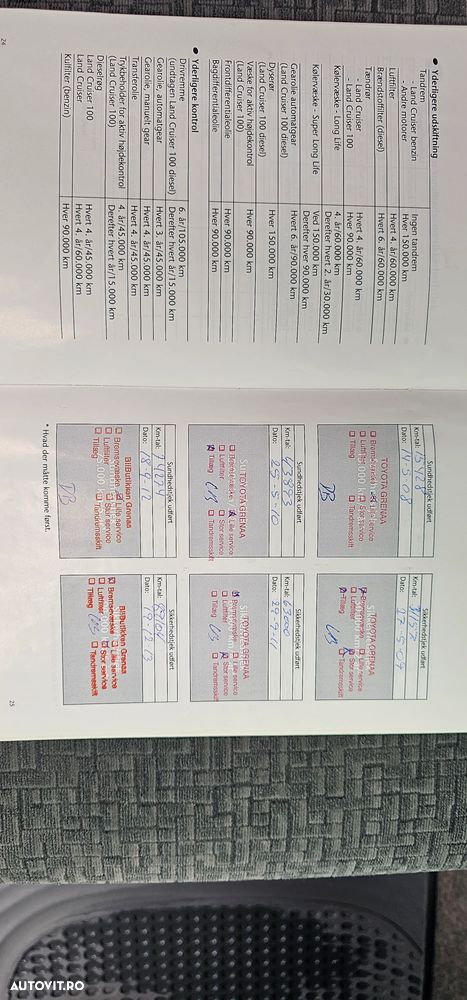 • Yderligere udskiftning
Tandrem
- Land Cruiser benzin Ingen tandrem
- Andre motorer Hver 150.000 km
Luftfilter Hvert 4. år/60.000 km
Brændstoffilter (diesel) Hvert 6. år/60.000 km
Tændrør
- Land Cruiser Hvert 4. år/60.000 km
- Land Cruiser 100 Hver 90.000 km
Kølervæske - Long Life 4. år/60.000 km
Derefter hvert 2. år/30.000 km
Kølervæske - Super Long Life Ved 150.000 km
Derefter hver 90.000 km
Gearolie automatgear Hvert 6. år/90.000 km
(Land Cruiser 100 diesel)
Dyserør Hver 150.000 km
(Land Cruiser 100 diesel)
Væske for aktiv højdekontrol Hver 90.000 km
(Land Cruiser 100)
Frontdifferentialeolie Hver 90.000 km
Bagdifferentialeolie Hver 90.000 km
• Yderligere kontrol
Drivremme 6. år/105.000 km
(undtagen Land Cruiser 100 diesel) Derefter hvert år/15.000 km
Gearolie, automatgear Hvert 3. år/45.000 km
Gearolie, manuelt gear Hvert 4. år/45.000 km
Transferolie Hvert 4. år/45.000 km
Trykbeholder for aktiv højdekontrol 4. år/45.000 km
(Land Cruiser 100) Derefter hvert år/15.000 km
Dieselrøg
Land Cruiser 100 Hvert 4. år/45.000 km
Land Cruiser Hvert 4. år/60.000 km
Kulfilter (benzin) Hver 90.000 km
24
Sundhedstjek udført
Km-tal:
Dato: 14-5-08
TOYOTA GRENAA
Bremsevæske Lille service
Luftfilter Stor service
Tillæg Tandremsskift
Sikkerhedstjek udført
Km-tal:
Dato: 27-5-09
TOYOTA GRENAA
Bremsevæske Lille service
Luftfilter Stor service
Tillæg Tandremsskift
Sundhedstjek udført
Km-tal: 43893
Dato: 25-5-10
TOYOTA GRENAA
Bremsevæske Lille service
Luftfilter Stor service
Tillæg Tandremsskift
Sikkerhedstjek udført
Km-tal: 63000
Dato:
TOYOTA GRENAA
Bremsevæske Lille service
Luftfilter Stor service
Tillæg Tandremsskift
Sundhedstjek udført
Km-tal: 74274
Dato: 18-9-12
BilButikken Grenaa
Bremsevæske Lille service
Luftfilter Stor service
Tillæg Tandremsskift
Sikkerhedstjek udført
Km-tal:
Dato: 19-12-13
BilButikken Grenaa
Bremsevæske Lille service
Luftfilter Stor service
Tillæg Tandremsskift
* Hvad der måtte komme først.
25
AUTOVIT.RO